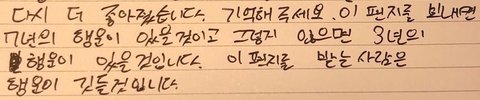 다시 더 좋아졌습니다. 기억해 주세요. 이 편지를 보내면
7년의 행운이 있을것이고 그렇지 않으면 3년의
행운이 있을것입니다. 이 편지를 받는 사람은
행운이 깃들것입니다.